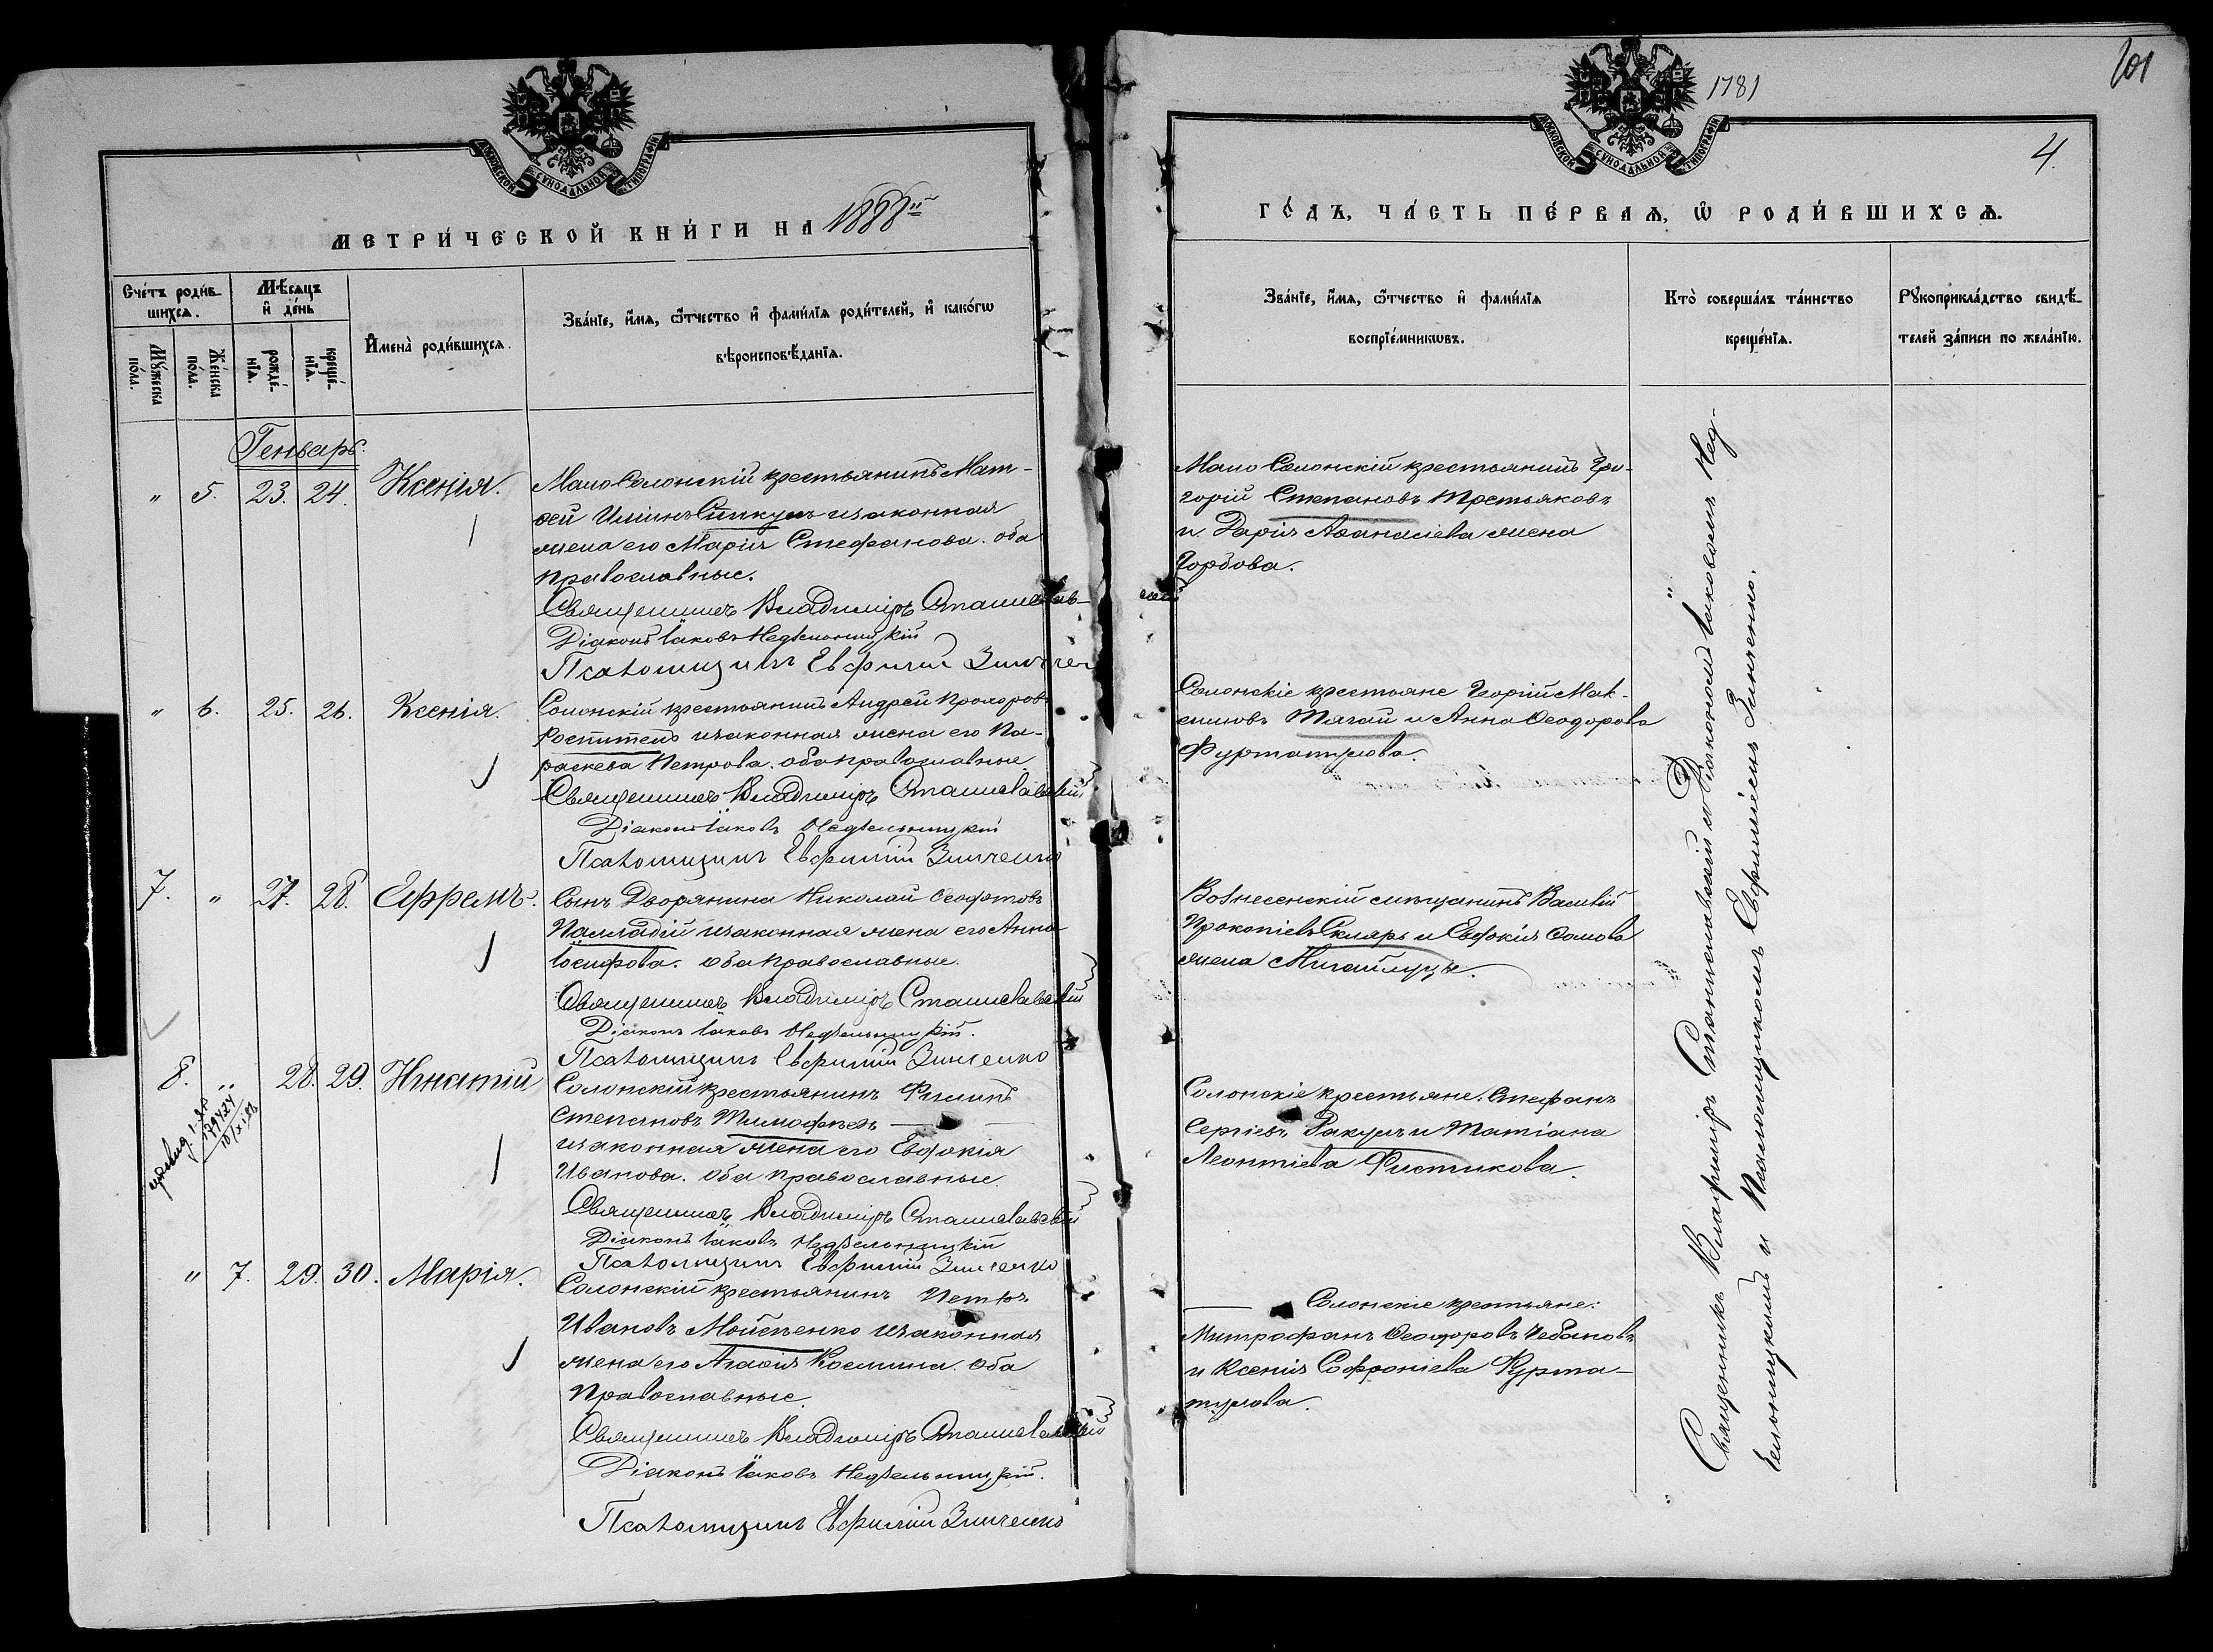 МОСКОВСКОЙ СѴНОДАЛЬНОЙ ТИПОГРАФІИ
МЕТРИ́ЧЕСКОЙ КНИ́ГИ НА 1888й
Сче́тъ роди́в-
шихсѧ.
Мѣ́сѧцъ
и҆ де́нь
И҆мена̀ роди́вшихсѧ.
Зва́нїе, и҆́мѧ, ѻ҆́тчество и҆ фами́лїѧ роди́телей, и҆ како́гѡ
вѣроисповѣ́данїѧ.
Мꙋ́жеска
по́ла.
Же́нска
по́ла.
рожде́-
нїѧ.
креще́-
нїѧ.
Генварь.
" 5. 23. 24. Ксенія.
Мало Солонскій крестьянинъ Мат-
фей Ильинъ и законная
жена его Марія Стефанова. оба
православные.
Священникъ Владиміръ Станиславскій
Діаконъ Іаковъ Недѣльницкій
Псаломщикъ Евфимій Зинчен
" 6. 25. 26. Ксенія.
Солонскій крестьянинъ Андрей Прохоровъ
и законная жена его Па-
раскева Петрова. оба православные
Священникъ Владиміръ Станиславскій
Діаконъ Іаковъ Недѣльницкій
Псаломщикъ Евфимій Зинченко
7. " 27. 28. Ефремъ.
Сынъ Дворянина Николай Ѳеофтовъ
Палладій и законная жена его Анна
Іосифова. оба православные.
Священникъ Владиміръ Станиславскій
Діаконъ Іаковъ Недѣльницкій.
Псаломщикъ Евфимій Зинченко
8. " 28. 29. Игнатій
Солонскій крестьянинъ Филипъ
Степановъ Тимофѣевъ
и законная жена его Евфокія
Иванова. оба православные.
Священникъ Владиміръ Станиславскій
Діаконъ Іаковъ Недѣльницкій
Псаломщикъ Евфимій Зинченко
" 7. 29. 30. Марія.
Солонскій крестьянинъ Петръ
Ивановъ Мойсѣенко и законная
жена его Агаѳія Косьмина. оба
православные.
Священникъ Владиміръ Станиславскій
Діаконъ Іаковъ Недѣльницкій.
Псаломщикъ Евфимій Зинченко
1781
201
4.
МОСКОВСКОЙ СѴНОДАЛЬНОЙ ТИПОГРАФІИ
ГО́ДЪ, ЧА́СТЬ ПЕ́РВАѦ, Ѡ҆ РОДИ́ВШИХСѦ.
Зва́нїе, и҆́мѧ, ѻ҆́тчество и҆ фами́лїѧ
воспрїе́мникѡвъ.
Кто̀ соверша́лъ та́инство
креще́нїѧ.
Рꙋкоприкла́дство свидѣ́-
телей за́писи по жела́нїю.
Мало Солонскій крестьянинъ Гри-
горій Степановъ Третьяковъ
и Дарія Аѳанасіева жена
Горбова.
Солонскіе крестьяне Георгій Мак-
симовъ и Анна Ѳеодорова
Фуртатулова.
Вознесенскій мѣщанинъ Василій
Прокопіевъ Скляръ и Евфокія Сомова
жена
Солонскіе крестьяне. Стефанъ
Сергіевъ и Татіана
Леонтіева Фистикова.
Солонскіе крестьяне:
Митрофанъ Ѳеодоровъ Чебановъ
и Ксенія Софроніева Фурта-
тулова.
Священникъ Владиміръ Станиславскій съ Діакономъ Іаковомъ Нед-
ѣльницкимъ и Псаломщикомъ Евфиміемъ Зинченко.